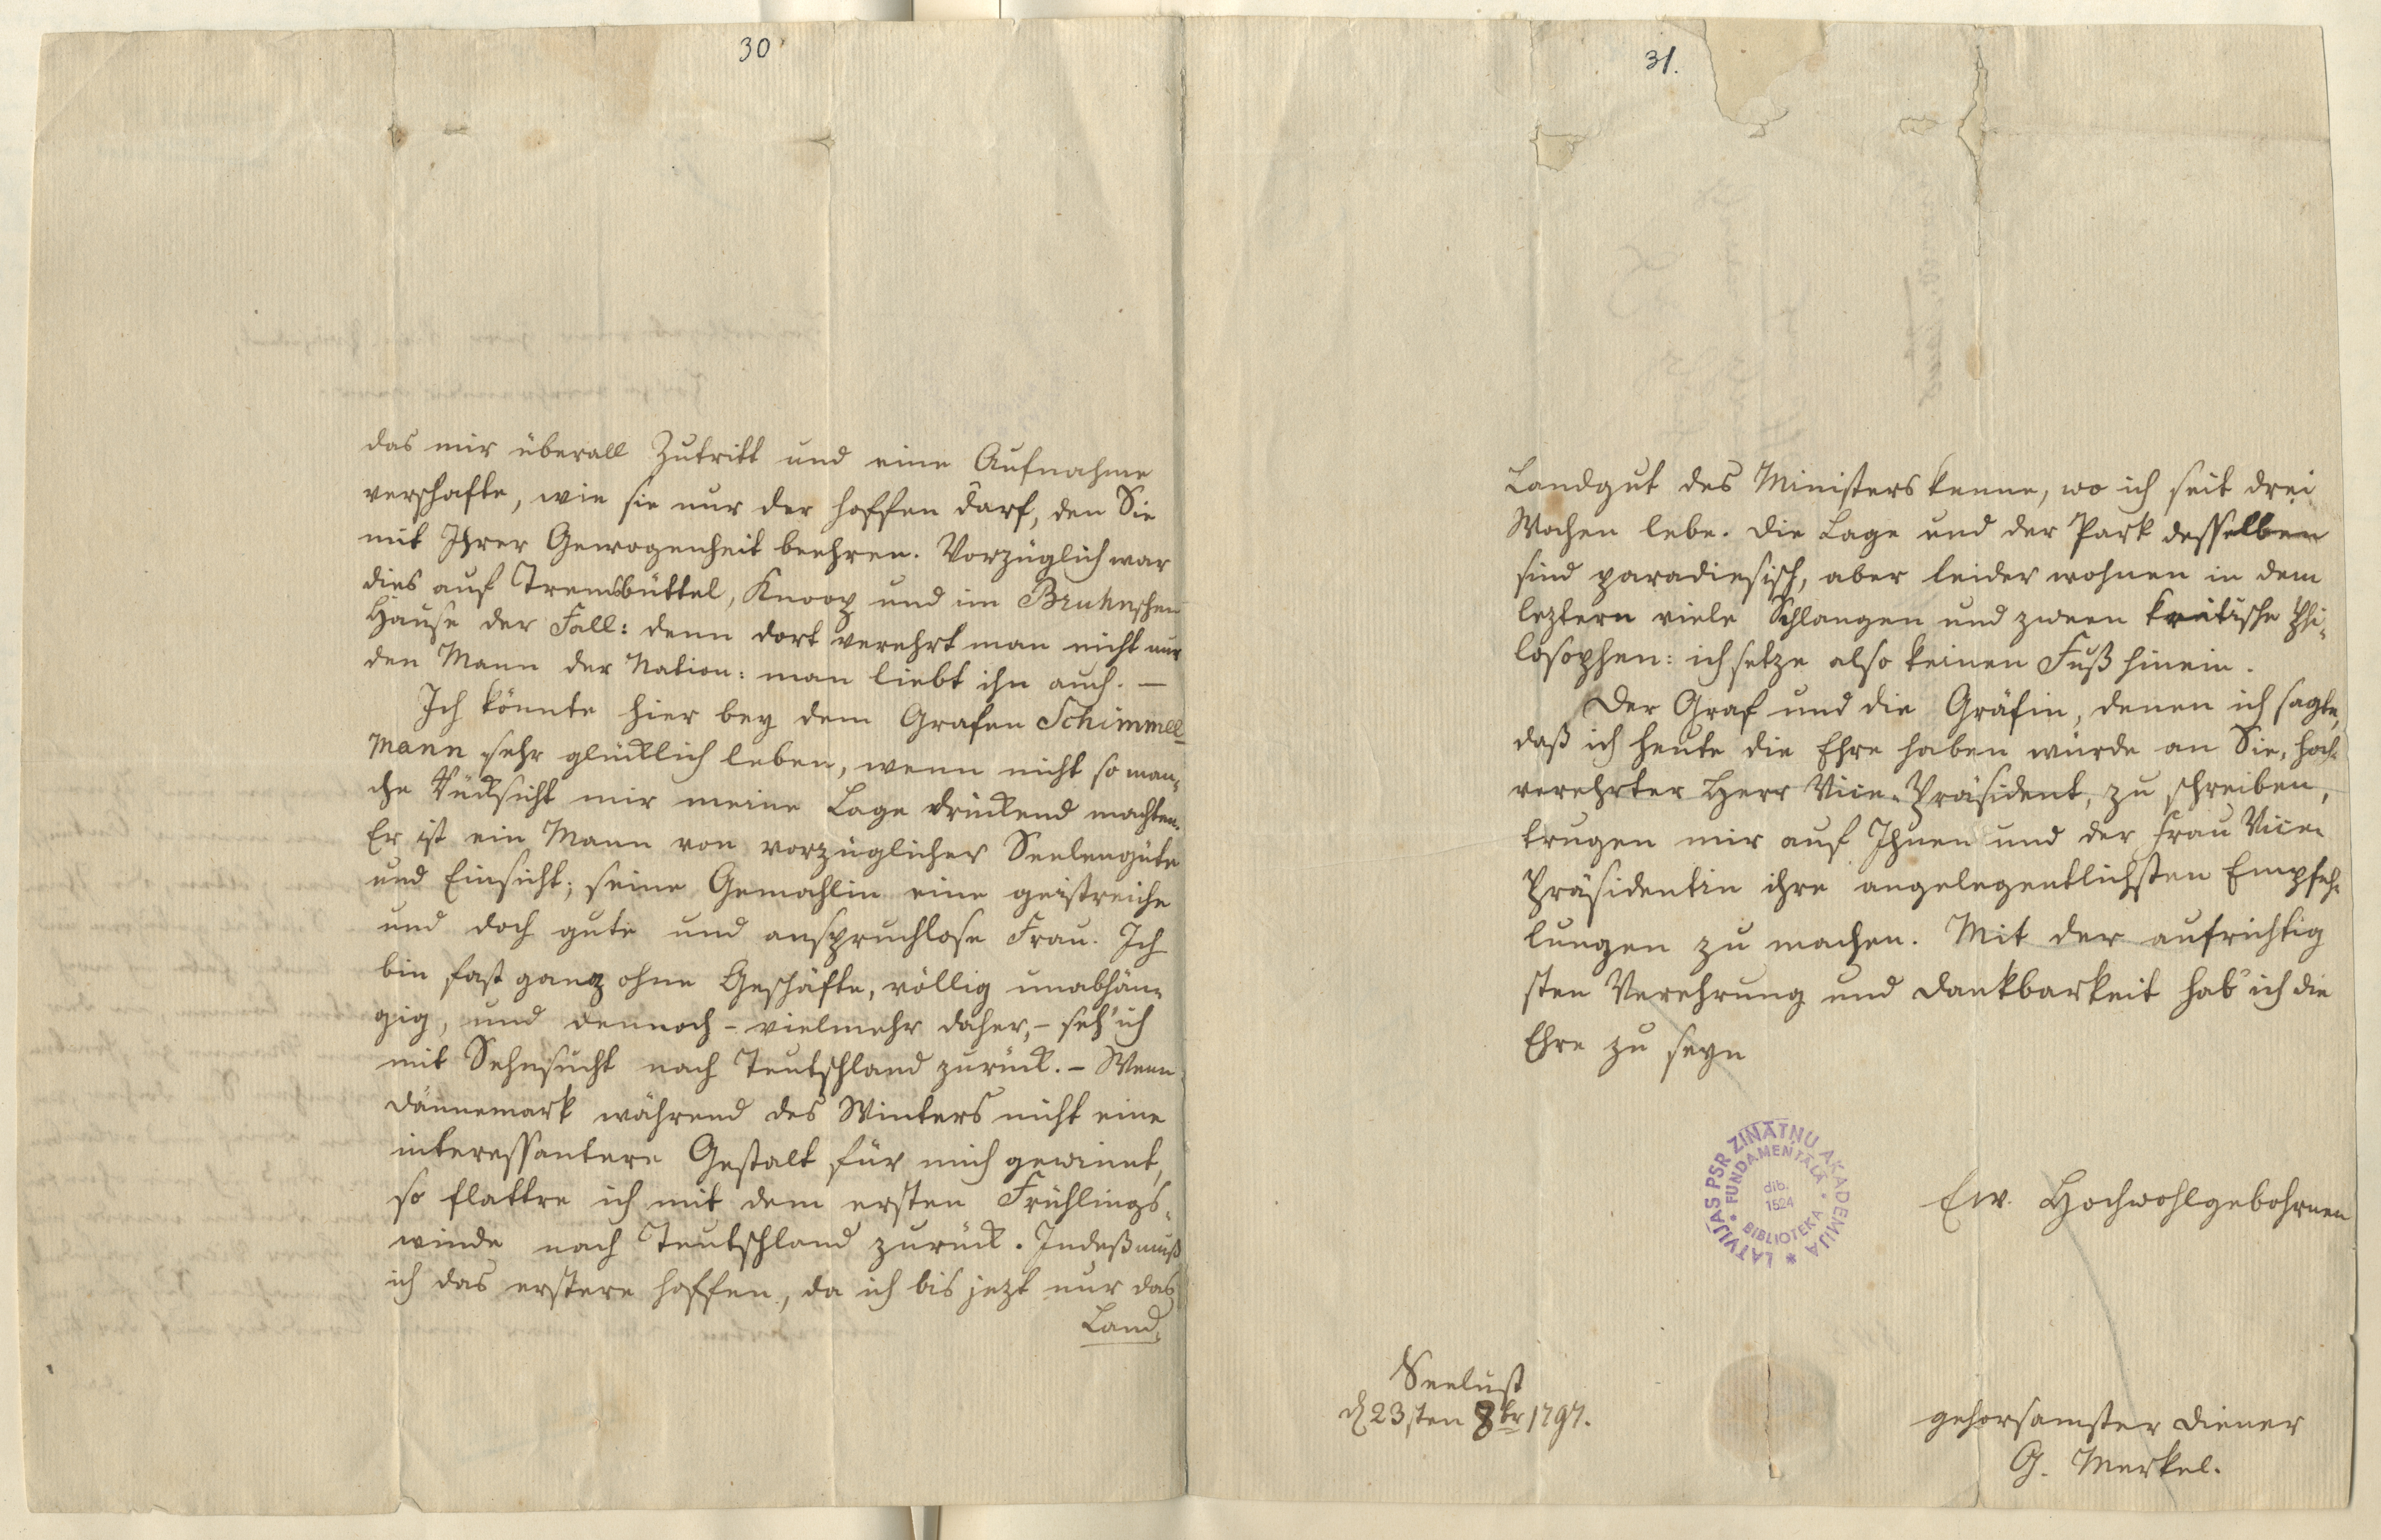 30
das mir überall Zutritt und eine Aufnahme
verschafte, wie sie nur der hoffen darf, den Sie
mit Ihrer Gewogenheit beehren. Vorzüglich war
dies auf Tremsbüttel, Knoop und im Bruhnschen
Hause der Fall: denn dort verehrt man nicht nur
den Mann der Nation: man liebt ihn auch. —
Ich könnte hier bey dem Grafen Schimmel-
mann sehr glücklich leben, wenn nicht so man-
che Rücksicht mir meine Lage drückend machten.
Er ist ein Mann von vorzüglicher Seelengüte
und Einsicht; seine Gemahlin eine geistreiche
und doch gute und anspruchlose Frau. Ich
bin fast ganz ohne Geschäfte, völlig unabhän-
gig, und dennoch – vielmehr daher, – seh' ich
mit Sehnsucht nach Teutschland zurück. – Wenn
Dännemark während des Winters nicht eine
interessantere Gestalt für mich gewinnt,
so flattre ich mit dem ersten Frühlings-
winde nach Teutschland zurück. Indeß muß
ich das erstere hoffen, da ich bis jezt nur das
Land-
31.
Landgut des Ministers kenne, wo ich seit drei
Wochen lebe. Die Lage und der Park desselben
sind paradiesisch, aber leider wohnen in dem
leztern viele Schlangen und zween kritische Phi-
losophen: ich setze also keinen Fuß hinein.
Der Graf und die Gräfin, denen ich sagte,
daß ich heute die Ehre haben würde an Sie, hoch-
verehrter Herr Vice-Präsident, zu schreiben,
trugen mir auf Ihnen und der Frau Vice-
Präsidentin ihre angelegentlichsten Empfeh-
lungen zu machen. Mit der aufrichtig
sten Verehrung und Dankbarkeit hab' ich die
Ehre zu seyn
LATVIJAS PSR ZINĀTŅU AKADEMIJA
FUNDAMENTĀLĀ BIBLIOTEKA
dib.
1524
Ew. Hochwohlgebohrnen
Seelust
d 23sten 8br 1797.
gehorsamster Diener
G. Merkel.